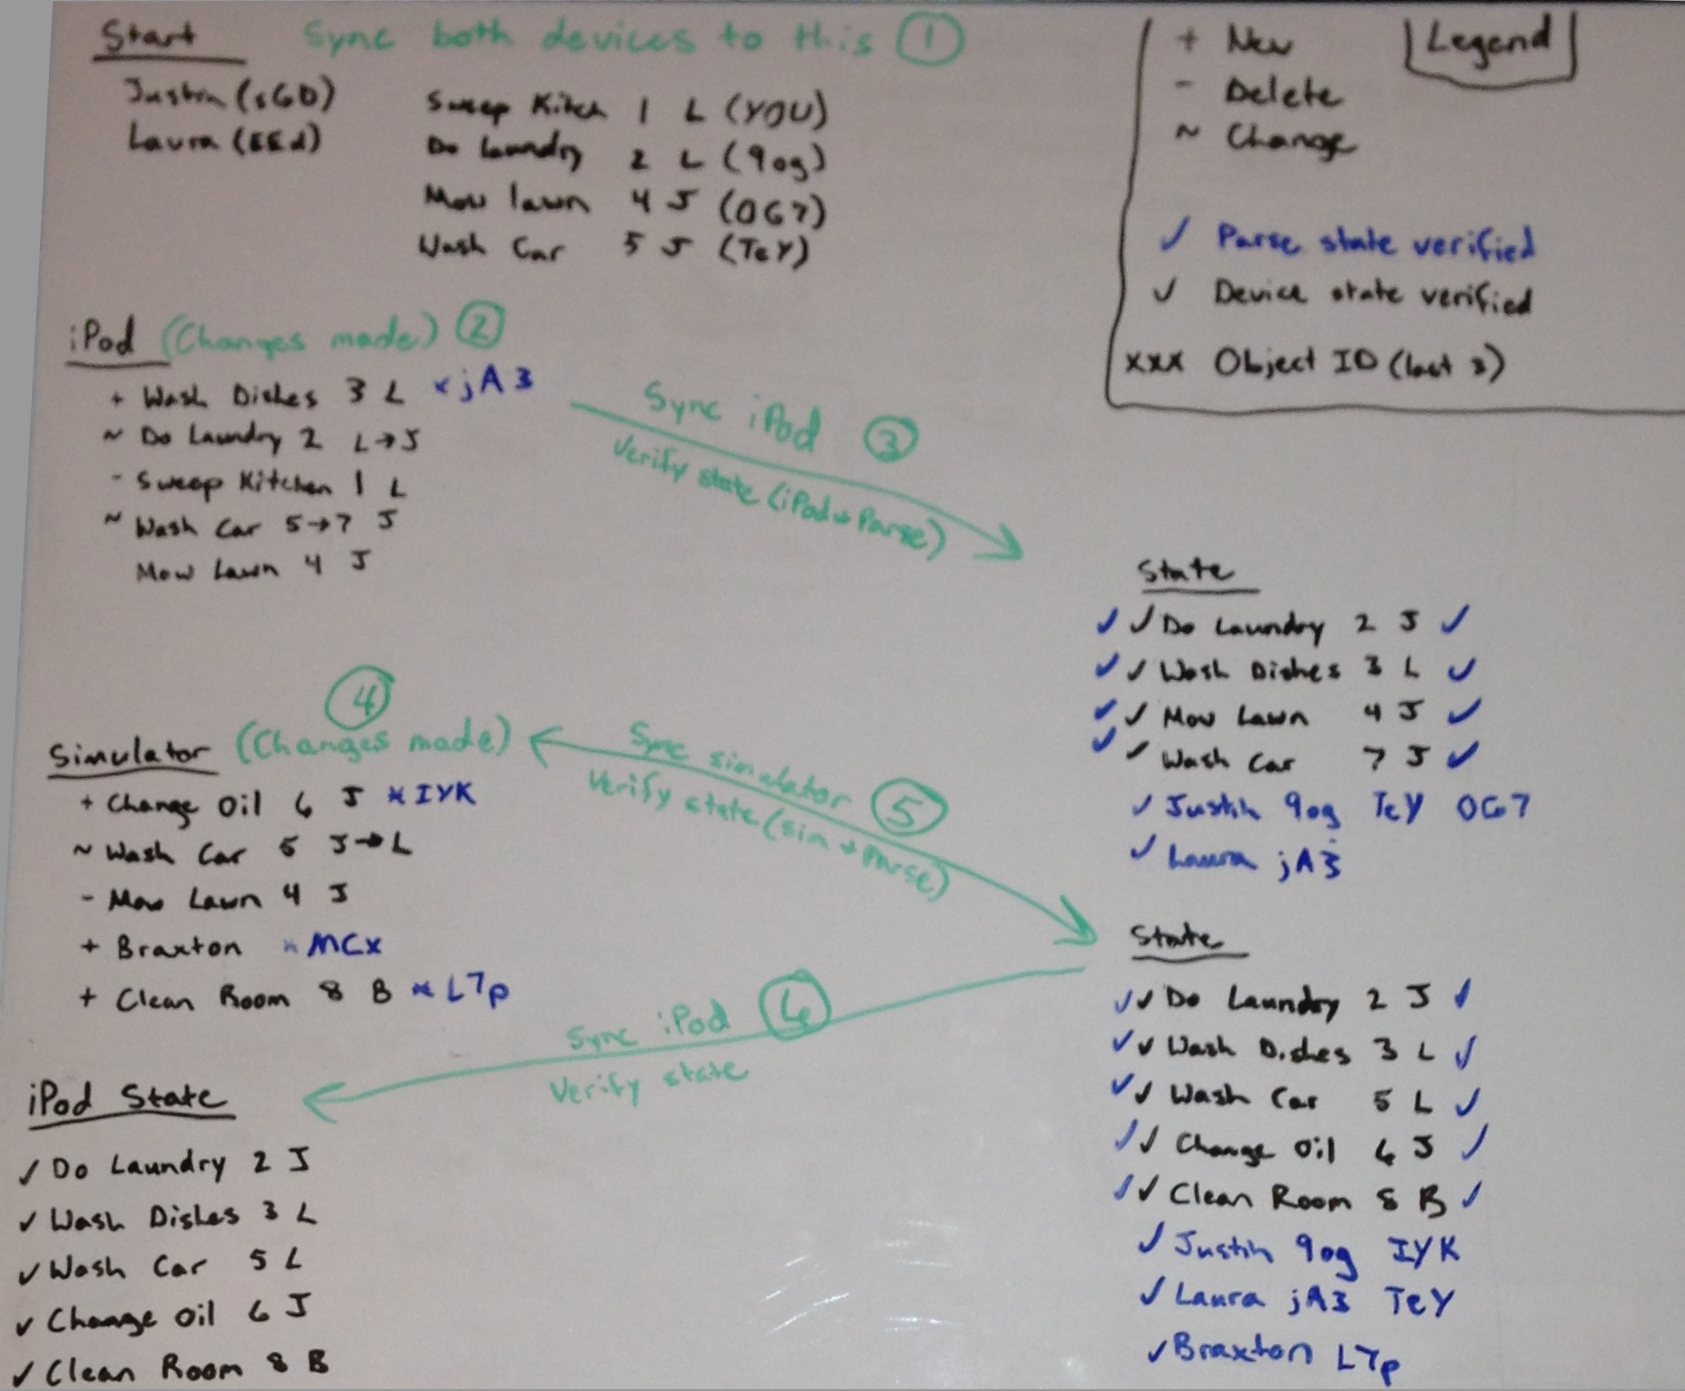 Start Sync both devices to this 1
Justin (sGD)
Laura (EEd)
Sweep Kitch 1 L (YOU)
Do Laundry 2 L (9og)
Mow lawn 4 J (OG7)
Wash Car 5 J (TeY)
Legend
+ New
- Delete
~ Change
✓ Parse state verified
✓ Device state verified
xxx Object ID (last 3)
iPod (Changes made) 2
+ Wash Dishes 3 L * jA3
~ Do Laundry 2 L→J
- Sweep Kitchen 1 L
~ Wash Car 5→7 J
Mow Lawn 4 J
Sync iPod 3
Verify state (iPod + Parse)
State
✓ ✓ Do Laundry 2 J ✓
✓ ✓ Wash Dishes 3 L ✓
✓ ✓ Mow Lawn 4 J ✓
✓ ✓ Wash Car 7 J ✓
✓ Justin 9og TeY OG7
✓ Laura jA3
4
Simulator (Changes made)
+ Change Oil 6 J * IYK
~ Wash Car 5 J→L
- Mow Lawn 4 J
+ Braxton * MCx
+ Clean Room 8 B * L7p
Sync simulator 5
Verify state (sim + Parse)
State
✓ ✓ Do Laundry 2 J ✓
✓ ✓ Wash Dishes 3 L ✓
✓ ✓ Wash Car 5 L ✓
✓ ✓ Change Oil 6 J ✓
✓ ✓ Clean Room 8 B ✓
✓ Justin 9og IYK
✓ Laura jA3 TeY
✓ Braxton L7p
Sync iPod 6
Verify state
iPod State
✓ Do Laundry 2 J
✓ Wash Dishes 3 L
✓ Wash Car 5 L
✓ Change Oil 6 J
✓ Clean Room 8 B